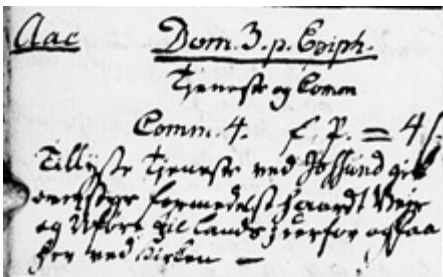 Aae
Dom. 3. p. Epiph.
Tjeneste og Comm
Comm. 4. f. P. = 4
Tillyste Tjeneste ved
formedelst haardt Vejr
og Uføre til lands hvorfor ogsaa
her ved Kirken —